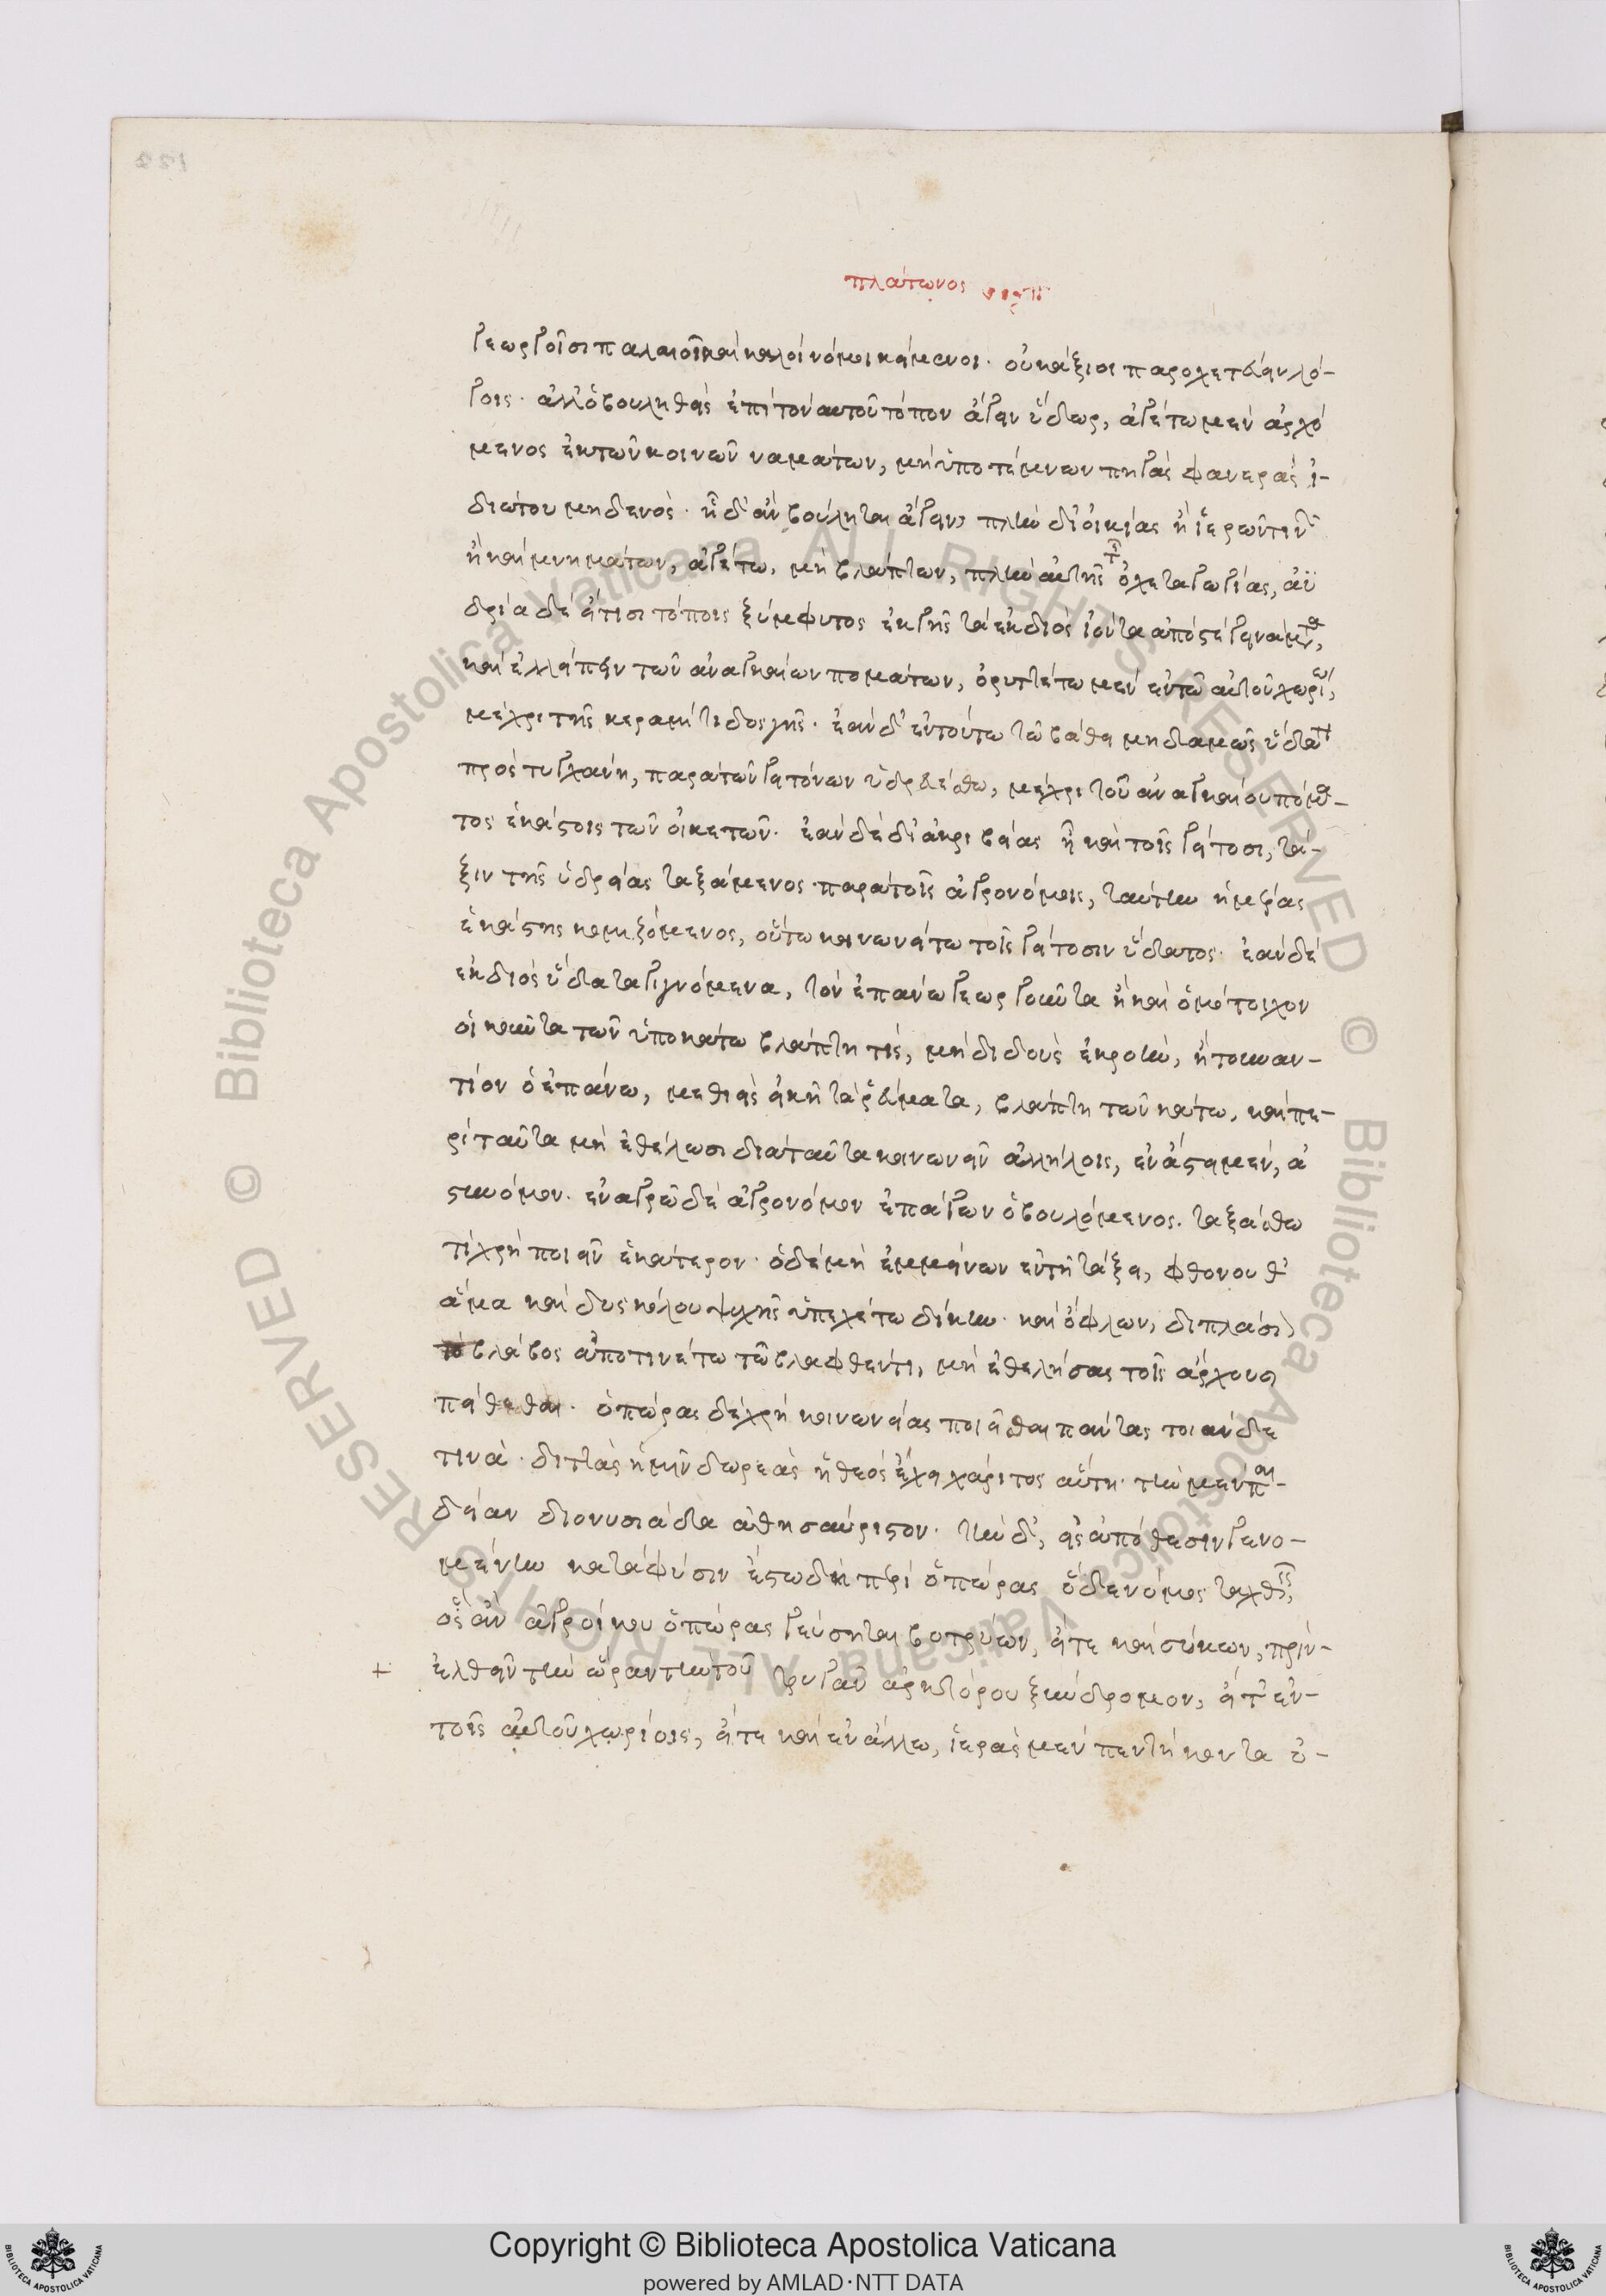 πλάτωνος
γεωργοῖσι παλαιοὶ καὶ καλοὶ νόμοι κείμενοι· οὐκ ἄξιοι παροχετεύειν λό-
γοις· ἀλλ' ὁ βουληθεὶς ἐπὶ τὸν αὐτοῦ τόπον ἄγειν ὕδωρ, ἀγέτω μὲν ἀρχό
μενος ἐκ τῶν κοινῶν ναμάτων, μὴ ὑποτέμνων πηγὰς φανερὰς ἰ-
διώτου μηδενὸς· ᾗ δ' ἂν βούληται ἄγειν, πλὴν δι' οἰκίας ἢ ἱερῶν τινῶν
ἢ καὶ μνημάτων, ἀγέτω, μὴ βλάπτων, πλὴν αὐτῆς τῆς ὀχεταγωγίας, ἀϋ
δρία δὲ εἴ τισι τόποις ξύμφυτος ἐκ γῆς τὰ ἐκ διὸς ἰόντα ἀποστέγει νάματα,
καὶ ἐλλείπειν τῶν ἀναγκαίων πομάτων, ὀρυττέτω μὲν ἐν τῷ αὐτοῦ χωρίῳ,
μέχρι τῆς κεραμίτιδος γῆς· ἐὰν δ' ἐν τούτω τῷ βάθει μηδαμῶς ὕδατι
προστυγχάνη, παρὰ τῶν γειτόνων ὑδρευέσθω, μέχρι τοῦ ἀναγκαίου πόμα-
τος ἑκάστοις τῶν οἰκετῶν· ἐὰν δὲ δι' ἀκριβείας ᾖ καὶ τοῖς γείτοσι, τά-
ξιν τῆς ὑδρείας ταξάμενος παρὰ τοῖς ἀγρονόμοις, ταύτην ἡμέρας
ἑκάστης κομιζόμενος, οὕτω κοινωνείτω τοῖς γείτοσιν ὕδατος· ἐὰν δὲ
ἐκ διὸς ὕδατα γιγνόμενα, τὸν ἐπάνω γεωργοῦντα ἢ καὶ ὁμότοιχον
οἰκοῦντα τῶν ὑποκάτω βλάπτη τὶς, μὴ διδοὺς ἐκροὴν, ἢ τοὐναν-
τίον ὁ ἐπάνω, μεθιεὶς εἰκῆ τὰ ῥεύματα, βλάπτη τὸν κάτω, καὶ πε-
ρὶ ταῦτα μὴ ἐθέλωσι διὰ ταῦτα κοινωνεῖν ἀλλήλοις, ἐν ἄστει μὲν, ἀ
στυνόμον· ἐν ἀγρῷ δὲ ἀγρονόμον ἐπάγων ὁ βουλόμενος· ταξάσθω
τί χρὴ ποιεῖν ἑκάτερον· ὁ δὲ μὴ ἐμμένων ἐν τῇ τάξει, φθόνου θ'
ἅμα καὶ δυσκόλου ψυχῆς ὑπεχέτω δίκην· καὶ ὄφλων, διπλάσιον
τὸ βλάβος ἀποτινέτω τῷ βλαφθέντι, μὴ ἐθελήσας τοῖς ἄρχουσι
πείθεσθαι· ὀπώρας δὲ χρὴ κοινωνίας ποιεῖσθαι πάντας τοιάνδε
τινά· διττὰς ἡμῖν δωρεὰς ἡ θεὸς ἔχει χάριτος αὕτη· τὴν μὲν παι-
δείαν διονυσιάδα ἀθησαύριστον· τὴν δ', εἰς ἀπόθεσιν γενο-
μένην κατὰ φύσιν ἔστω δὴ περὶ ὀπώρας ὅδε νόμος ταχθεὶς,
ὃς ἂν ἀγροίκου ὀπώρας γεύσηται βοτρύων, εἴτε καὶ σύκων, πρὶν-
ἐλθεῖν τὴν ὥραν τὴν τοῦ τρυγᾶν ἀρκτούρου ξύνδρομον, εἴτ' ἐν-
τοῖς αὐτοῦ χωρίοις, εἴτε καὶ ἐν ἄλλω, ἱερὰς μὲν πεντήκοντα ὀ-